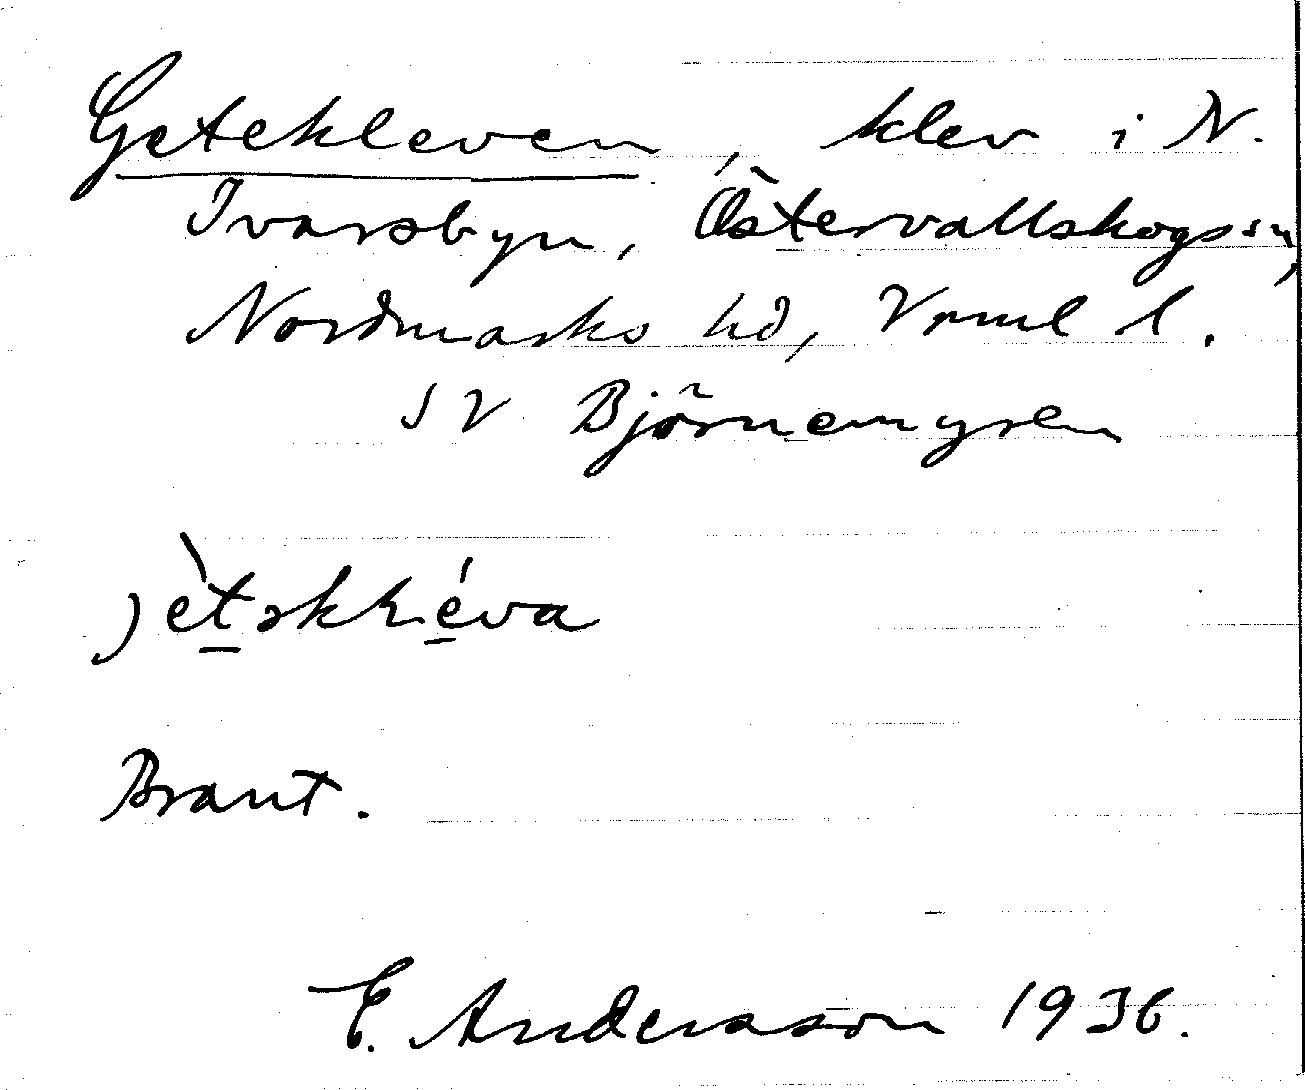 Getekleven, klev i N.
Ivarsbyn, Östervallskogs sn,
Nordmarks hd, Vrml l.
SV Björnemyren
jètəkléva
Brant.
E. Andersson 1936.